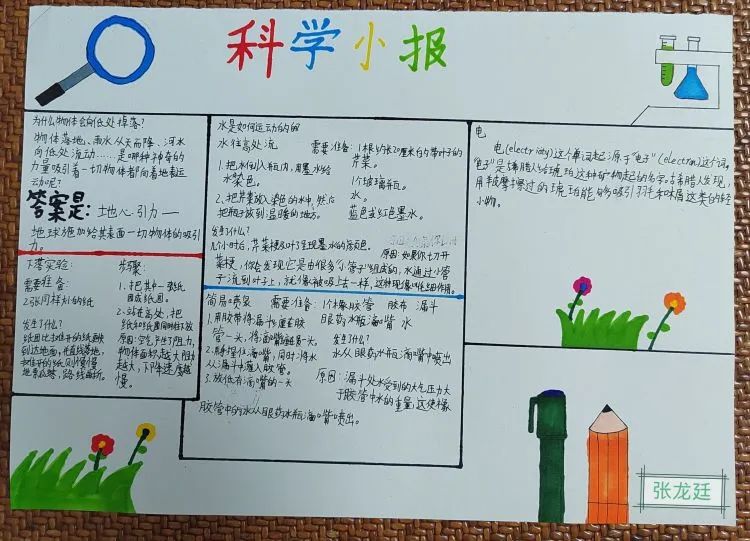 科学小报
为什么物体会向低处掉落?
物体落地、雨水从天而降、河水
向低处流动……是哪种神奇的
力量吸引着一切物体都向着地表运
动呢?
答案是:地心引力——
地球施加给其表面一切物体的吸引
力。
下落实验:
需要准备:
2张同样大的纸
发生了什么?
纸团比打开的纸更快
到达地面,
步骤:
1、把其中一张纸
团成纸团。
2、站在高处,把
纸和纸团同时往下放
原因:空气产生了阻力,
物体面积越大阻力
越大,下降速度越
慢。
水是如何运动的
水往高处流
需要准备:1根约长20厘米的带叶子的
芹菜。
1个玻璃瓶。
水。
蓝色或红色墨水。
1、把水倒入瓶内,用墨水给
水染色。
2、把芹菜放入染色的水中,然后
把瓶子放到温暖的地方。
发生了什么?
几个小时后,芹菜梗及叶子呈现墨水的颜色。
原因:如果你切开
菜梗,你会发现它是由很多小“管子”组成的,水通过小管
子流到叶子上,就像被吸上去一样,这种现象叫毛细作用。
简易喷泉
需要准备:1个橡胶管 胶布 漏斗
眼药水瓶滴嘴 水
1、用胶带将漏斗连在胶
管一头,将滴嘴连在另一头。
2、用手捏住滴嘴,同时将水
从漏斗中灌入胶管。
3、放低有滴嘴的一头
发生什么?
水从眼药水瓶滴嘴中喷出
原因:漏斗处水受到的大气压力大
于胶管中水的重量,这使橡
胶管中的水从眼药水瓶滴嘴喷出。
电
电(electricity)这个单词起源于“电子”(electron)这个词。
“电子”是希腊人给琥珀这种矿物起的名字。古希腊人发现,
用羊皮摩擦过的琥珀能够吸引羽毛和木屑这类的轻
小物。
张龙廷